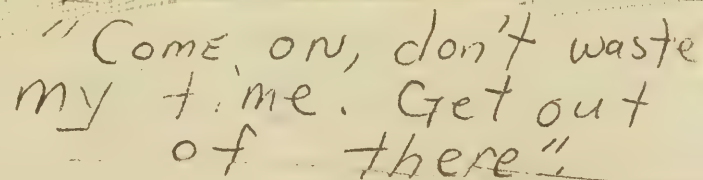 "Come on, don't waste
my time. Get out
of there"